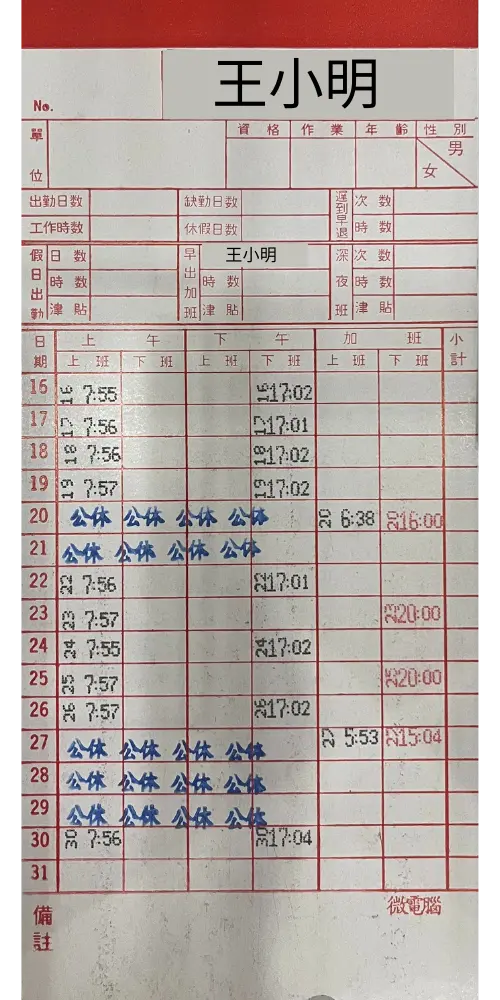 王小明
No.
單位 資格 作業 年齡 性別 男 女
出勤日数 缺勤日數 遲到早退 次數
工作時数 休假日数 時數
假日出勤 日數 早出加班 王小明 深夜班 次數
時數 時數 時數
津貼 津貼 津貼
日期 上午 下午 加班 小計
上班 下班 上班 下班 上班 下班
16 16 7:55 16 17:02
17 17 7:56 17 17:01
18 18 7:56 18 17:02
19 19 7:57 19 17:02
20 公休 公休 公休 公休 20 6:38 20 16:00
21 公休 公休 公休 公休
22 22 7:56 22 17:01
23 23 7:57 23 20:00
24 24 7:55 24 17:02
25 25 7:57 25 20:00
26 26 7:57 26 17:02
27 公休 公休 公休 公休 27 5:53 27 15:04
28 公休 公休 公休 公休
29 公休 公休 公休 公休
30 30 7:56 30 17:04
31
備註 微電腦